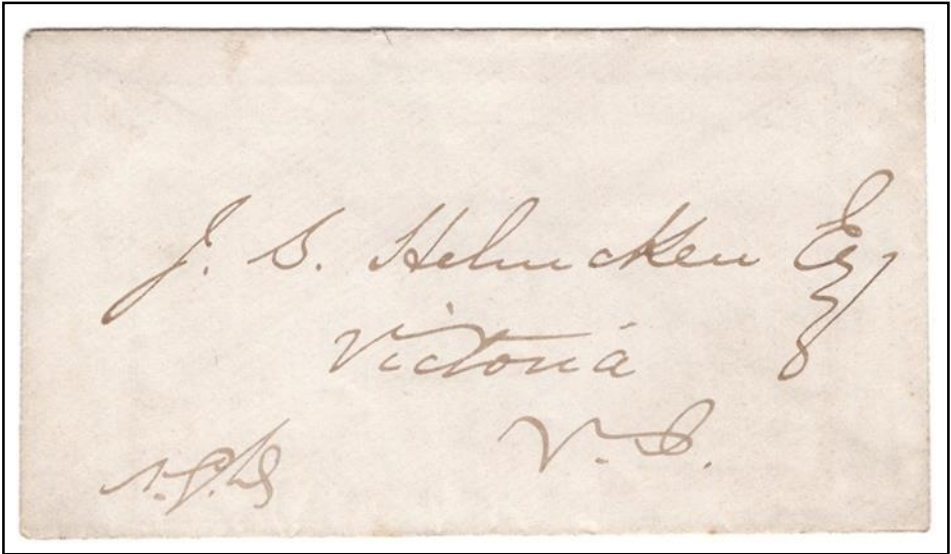 J. S. Helmcken Esq
Victoria
V. I.